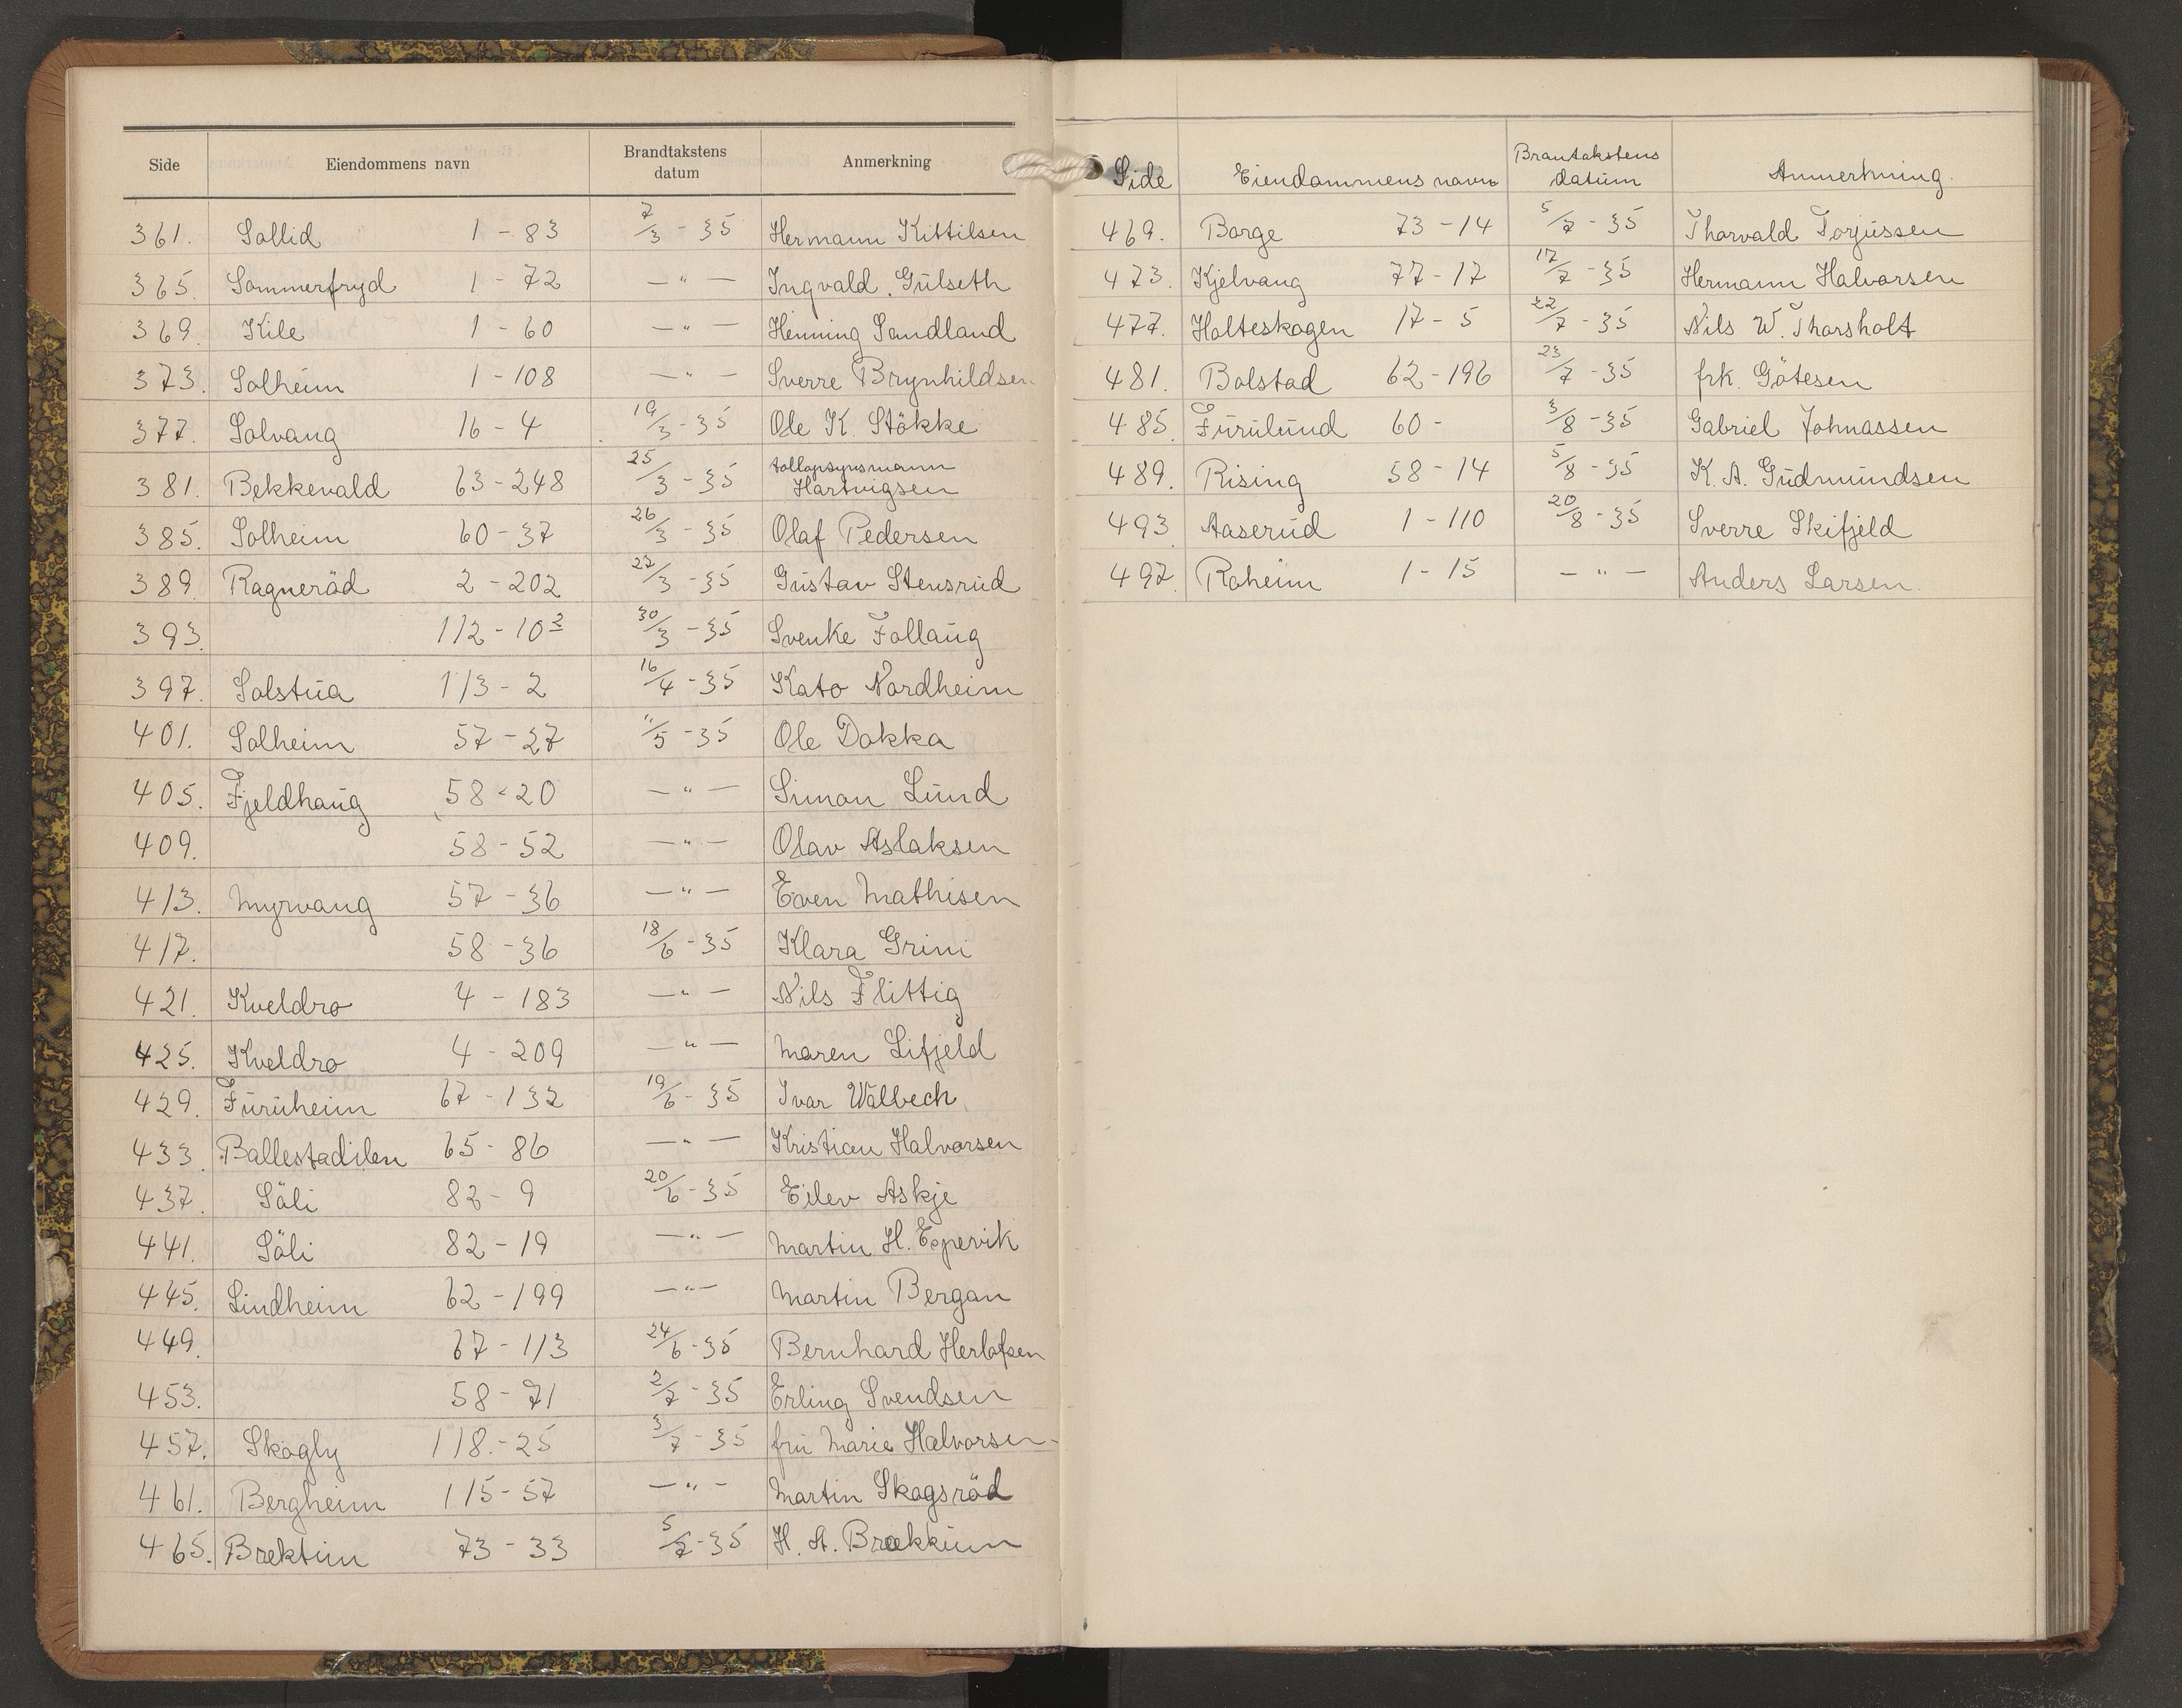 Side Eiendommens navn Brandtakstens datum Anmerkning
361. Sollid 1 - 83 7/3 - 35 Hermann Kittilsen
365. Sommerfryd 1 - 72 — " — Ingvald. Gulseth
369. Kile 1 - 60 — " — Henning Sandland
373. Solheim 1 - 108 — " — Sverre Brynhildsen
377. Solvang 16 - 4 19/3 - 35 Ole K. Stökke
381. Bekkevold 63 - 248 25/3 - 35 tollopsynsmann Hartvigsen
385. Solheim 60 - 37 26/3 - 35 Olaf Pedersen
389. Ragneröd 2 - 202 27/3 - 35 Gustav Stensrud
393. 112 - 10² 30/3 - 35 Svenke Follaug
397. Solstua 113 - 2 16/4 - 35 Kato Nordheim
401. Solheim 57 - 27 11/5 - 35 Ole Dokka
405. Fjeldhaug 58 - 20 — " — Simon Lund
409. 58 - 52 — " — Olav Aslaksen
413. Myrvang 57 - 36 — " — Even Mathisen
417. 58 - 36 18/6 - 35 Klara Grini
421. Kveldro 4 - 183 — " — Nils Flittig
425. Kveldro 4 - 209 — " — Maren Lifjeld
429. Furuheim 67 - 132 19/6 - 35 Ivar Walbech
433. Ballestadilen 65 - 86 — " — Kristian Halvorsen
437. Söli 82 - 9 20/6 - 35 Eilev Askje
441. Söli 82 - 19 — " — Martin H. Espevik
445. Lindheim 62 - 199 — " — Martin Bergan
449. 67 - 113 24/6 - 35 Bernhard Herlofsen
453. 58 - 71 2/7 - 35 Erling Svendsen
457. Skogly 118. - 25 3/7 - 35 fru Marie Halvorsen
461. Bergheim 115 - 57 — " — Martin Skogsröd
465. Brektun 73 - 33 5/7 - 35 H. A. Brækkum
Side Eiendommens navn Brantakstens datum Anmerkning.
469. Borge 73 - 14 5/7 - 35 Thorvald Torjussen
473. Kjelvang 77 - 17 17/7 - 35 Hermann Halvorsen
477. Holteskogen 17 - 5 22/7 - 35 Nils W. Thorsholt
481. Bolstad 62 - 196 23/7 - 35 frk. Götesen
485. Furulund 60 - 3/8 - 35 Gabriel Johnassen
489. Rising 58 - 14 5/8 - 35 K. A. Gudmundsen
493. Aaserud 1 - 110 20/8 - 35 Sverre Skifjeld
497. Roheim 1 - 15 — " — Anders Larsen